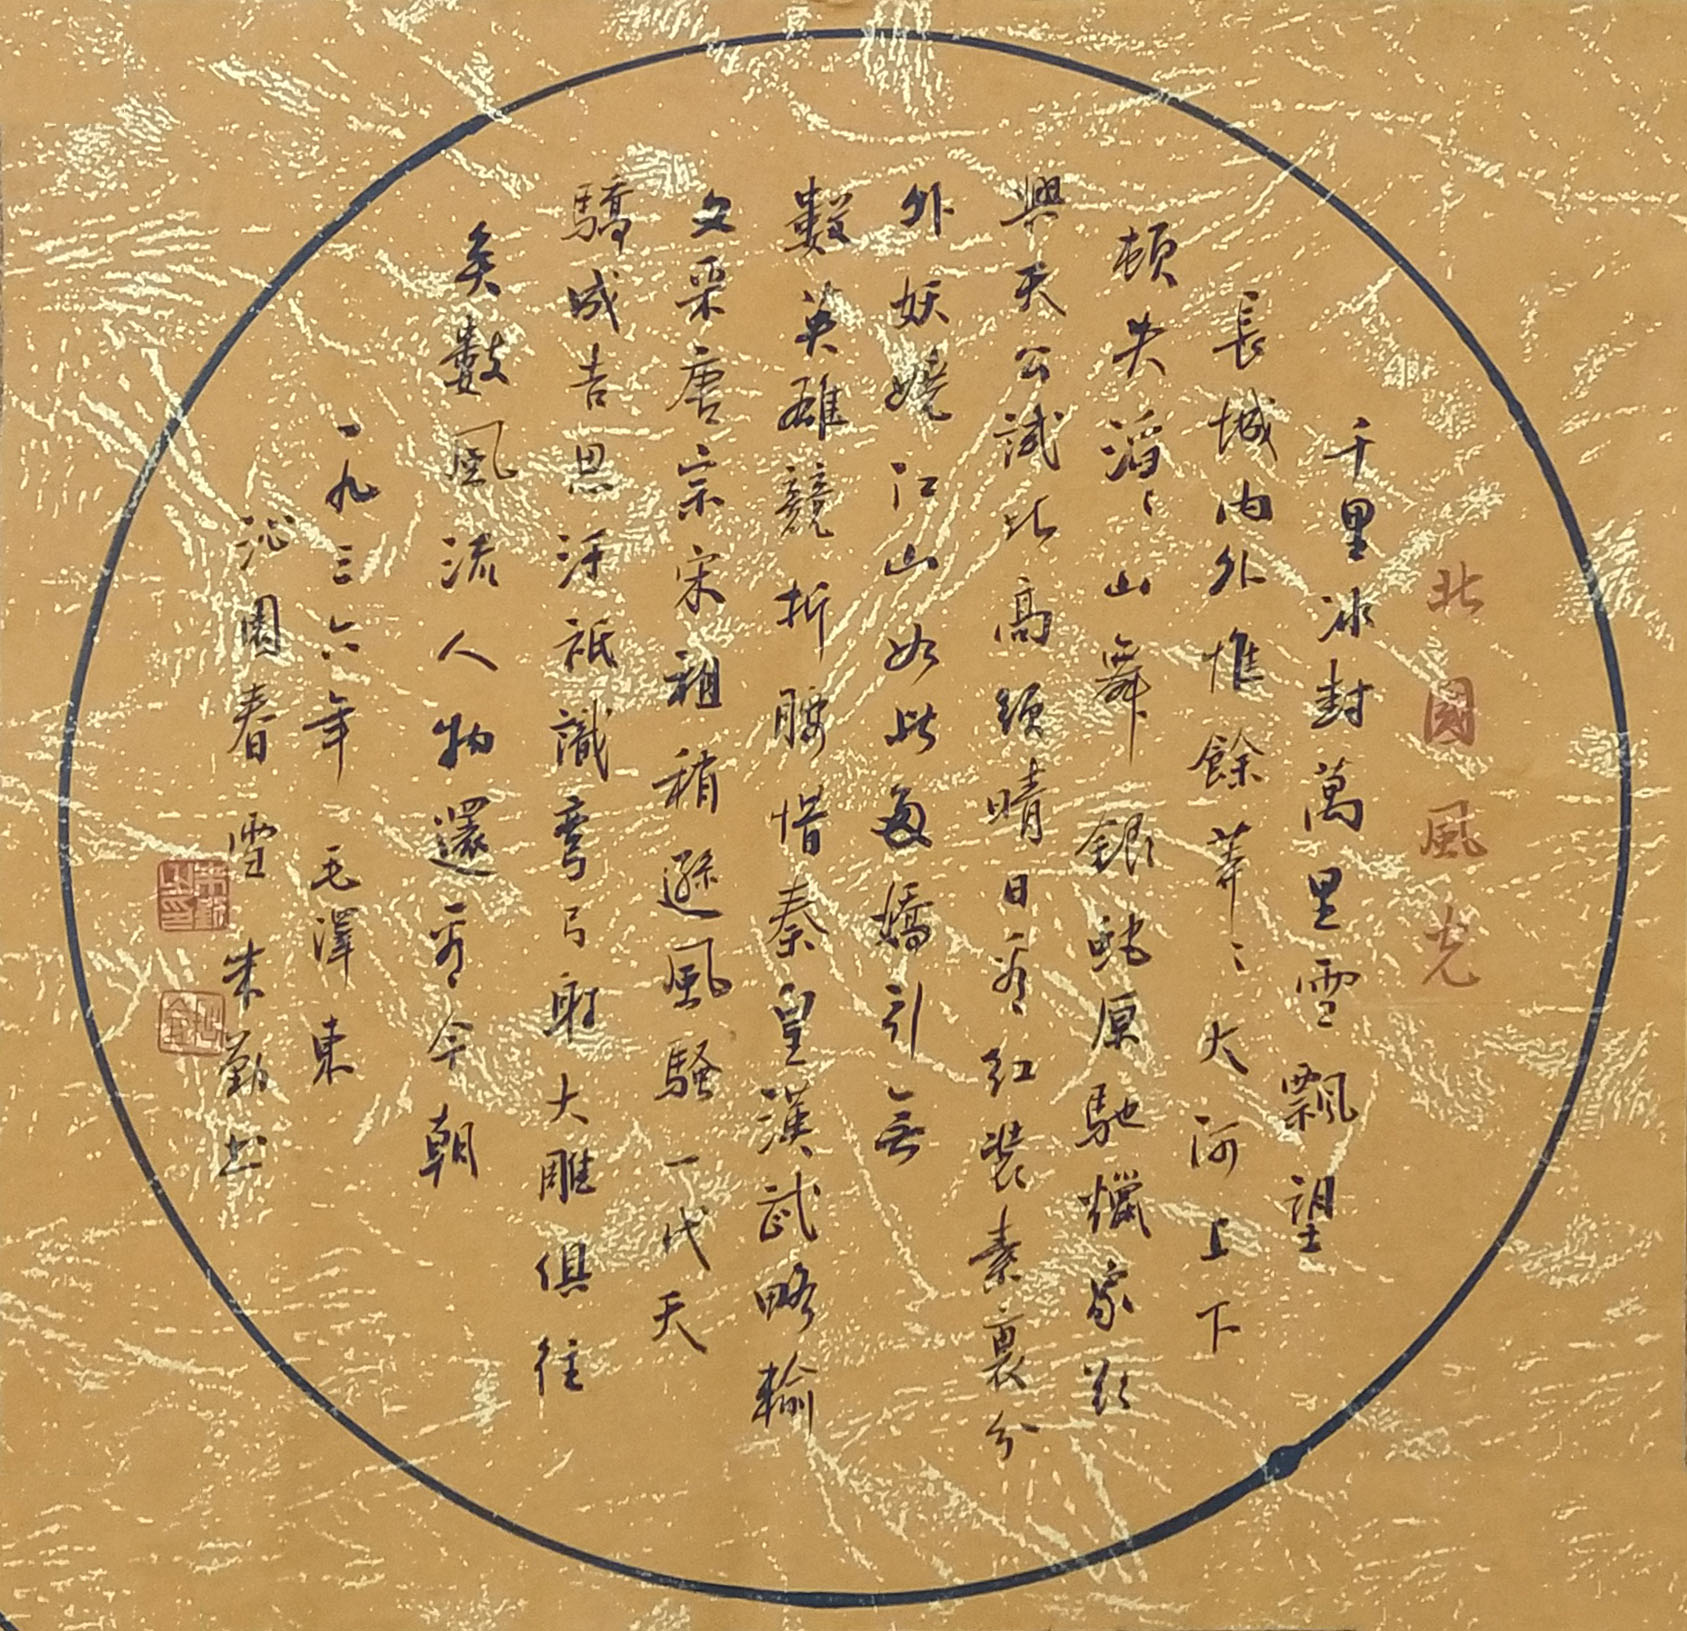 北國風光
千里冰封萬里雪飄望
長城内外惟餘莽〻大河上下
頓失滔〻山舞銀蛇原馳蠟象欲
與天公試比高須晴日看紅裝素裹分
外妖嬈江山如此多嬌引無
數英雄競折腰惜秦皇漢武略輸
文采唐宗宋祖稍遜風騷一代天
驕成吉思汗祇識彎弓射大雕俱往
矣數風流人物還看今朝
一九三六年 毛澤東
沁園春 雪 朱勤書